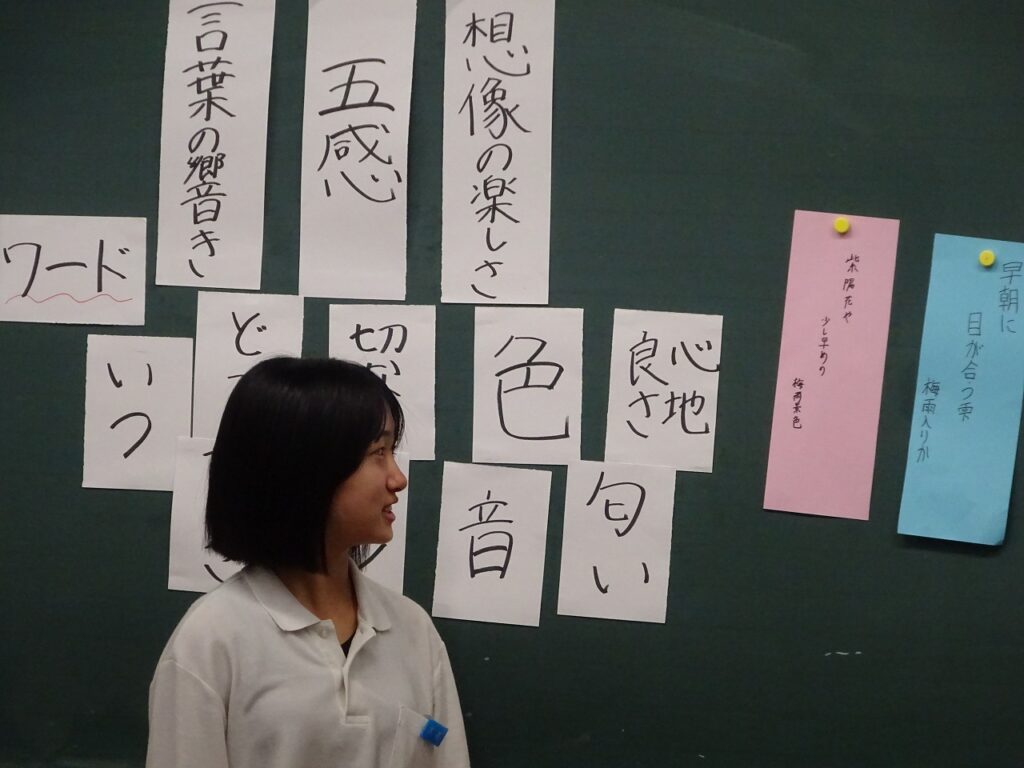 ワード
言葉の響き
五感
想像の楽しさ
いつ
ど
切な
色
心地
良さ
音
匂い
紫陽花や
少し早めの
梅雨景色
早朝に
目が合う雫
梅雨入りか